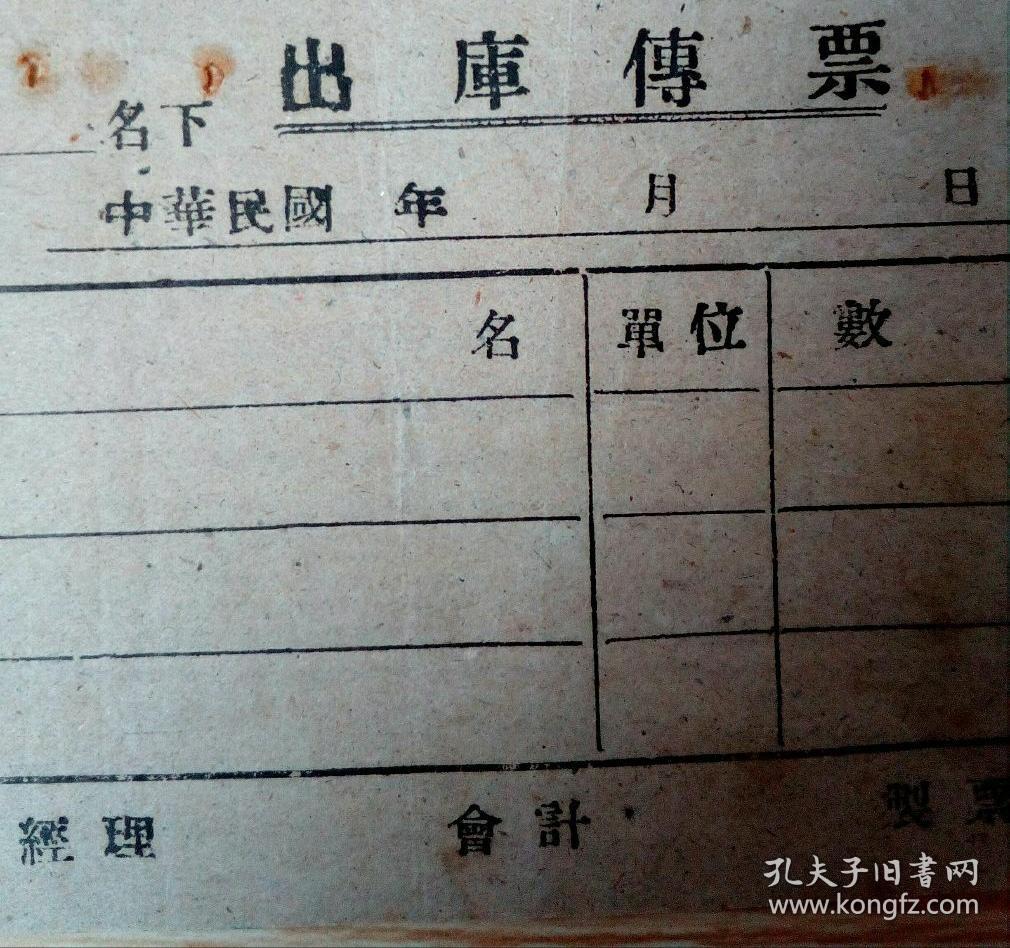 出庫傳票
名下
中華民國 年 月 日
名 單位 數
經理 會計 製票
孔夫子旧书网
www.kongfz.com